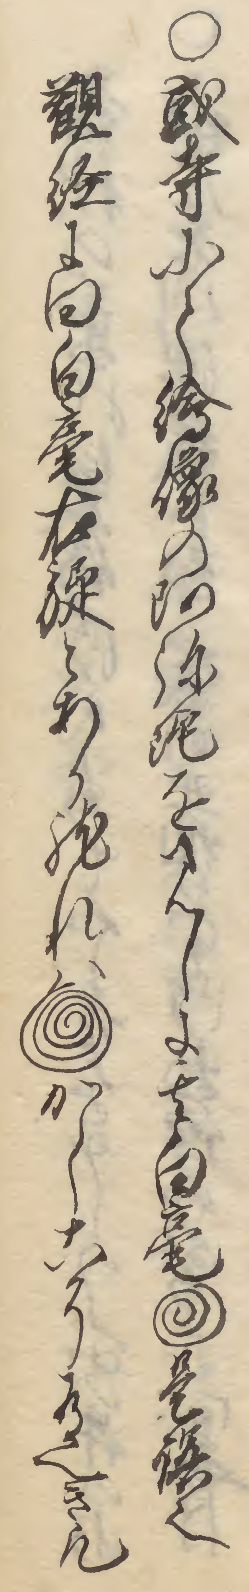 ○或寺にて繪像の阿弥陀を見しに其白毫是誤也
觀経に曰白毫右旋とあり然れハかくこそ有へき也